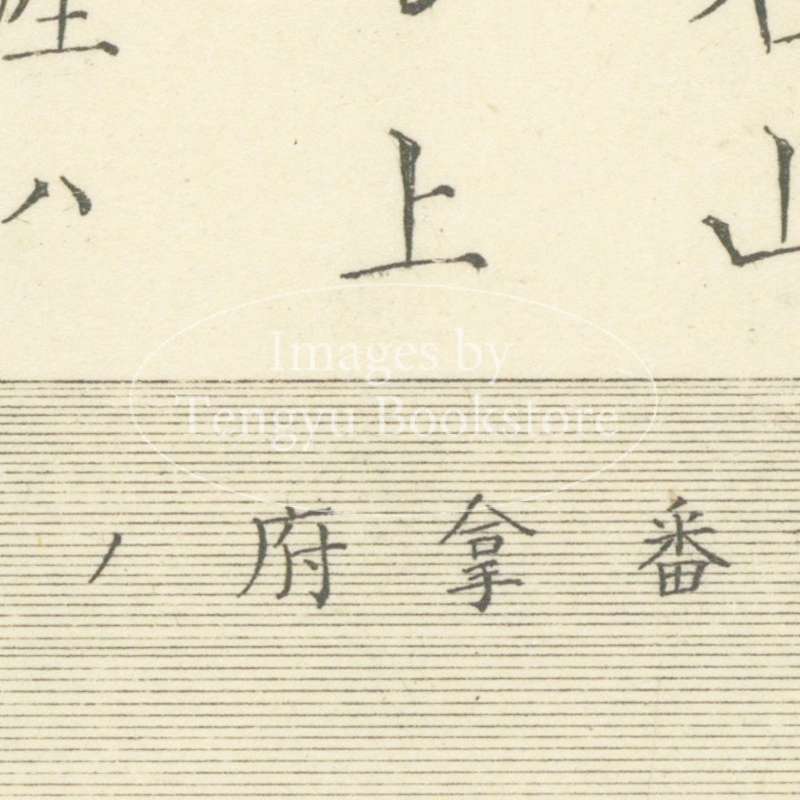 ハ
上
山
Images by
Tengyu Bookstore
番拿府ノ